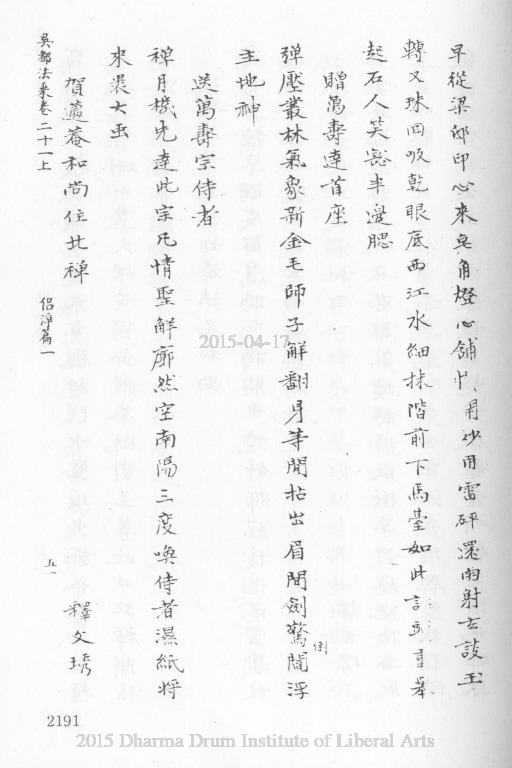 早從梁邸印心來皂角燈心舖片開沙用雷砰還雨射去設玉
轉又珠回吸乾眼底西江水細抹階前下馬臺如此言重舉
起石人笑豁半邊腮
贈萬壽達首座
彈壓叢林氣象新金毛師子解翻身等閒拈出眉間劍驚倒閻浮
主地神
送萬壽宗侍者
禪月機先達此宗凡情聖解廓然空南陽三度喚侍者濕紙將
來裹大蟲
賀菴和尚住北禪
釋文琇
吳都法乘卷二十一上
侶淨篇一
五一
2191
2015-04-17
2015 Dharma Drum Institute of Liberal Arts